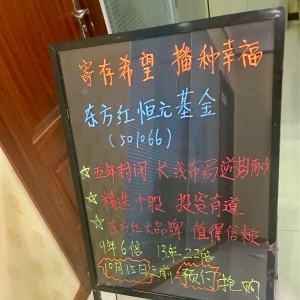 寄存希望 播种幸福
东方红恒元基金
(501066)
☆五年封闭 长线布局逆势而
☆精选个股 投资有道
☆东方红大品牌 值得信赖
9年6倍 13年22倍
10月15日之前 预约抢购